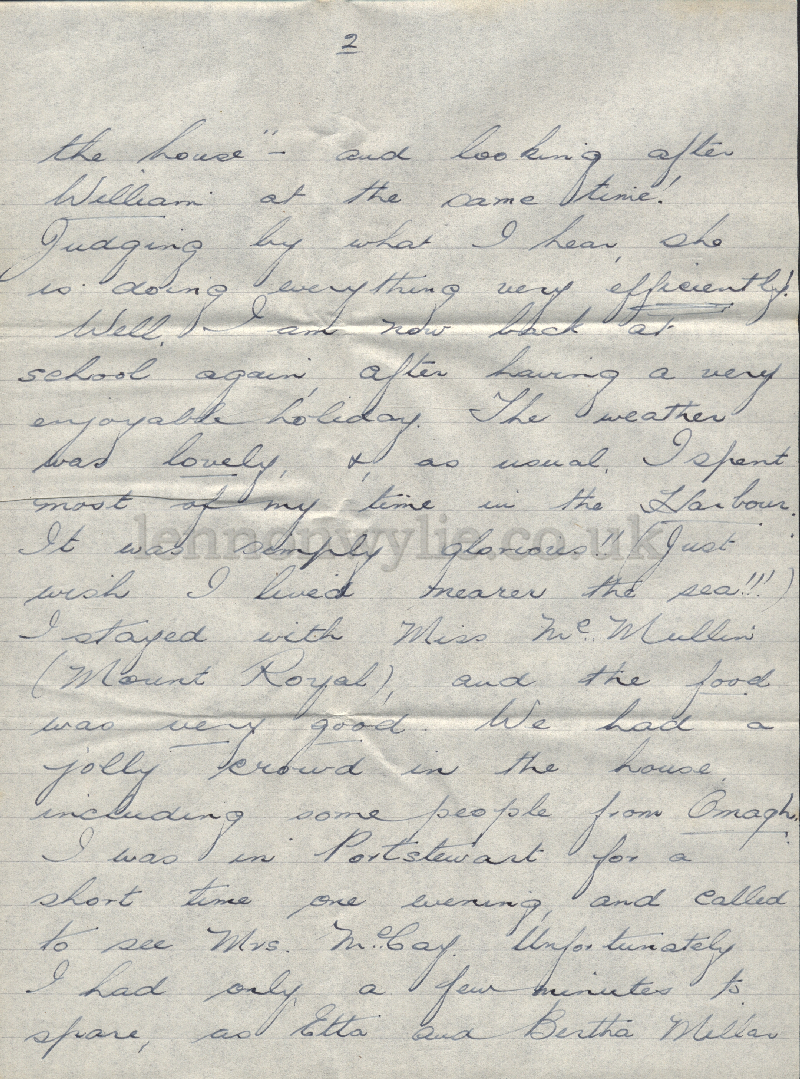 2
the house" - and looking after
William at the same time!
Judging by what I hear, she
is doing everything very efficiently!
Well, I am now back at
school again, after having a very
enjoyable holiday. The weather
was lovely, &, as usual, I spent
most of my time in the Harbour.
lennonwylie.co.uk
It was simply glorious!! (Just
wish I lived nearer the sea!!!)
I stayed with Miss McMullin
(Mount Royal), and the food
was very good. We had a
jolly crowd in the house,
including some people from Omagh!
I was in Portstewart for a
short time one evening, and called
to see Mrs. McCay. Unfortunately
I had only a few minutes to
spare, as Etta and Bertha Millar